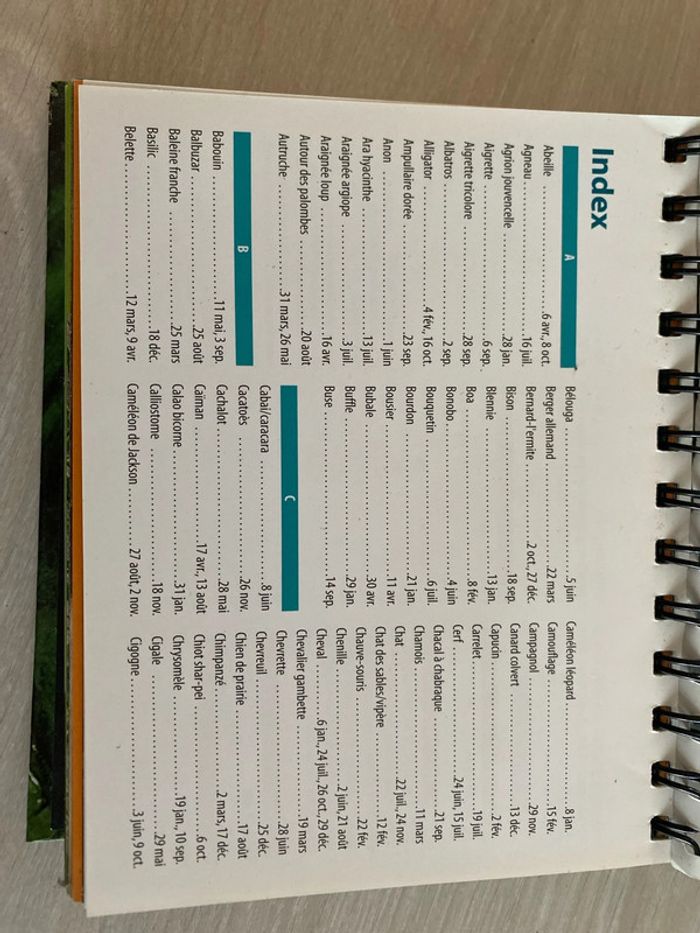 Index
A
Abeille ..............................6 avr., 8 oct.
Agneau ..............................16 juil.
Agrion jouvencelle ..............................28 jan.
Aigrette ..............................6 sep.
Aigrette tricolore ..............................28 sep.
Albatros ..............................2 sep.
Alligator ..............................4 fév., 16 oct.
Ampullaire dorée ..............................23 sep.
Anon ..............................1 juin
Ara hyacinthe ..............................13 juil.
Araignée argiope ..............................3 juil.
Araignée loup ..............................16 avr.
Autour des palombes ..............................20 août
Autruche ..............................31 mars, 26 mai
B
Babouin ..............................11 mai, 3 sep.
Balbuzar ..............................25 août
Baleine franche ..............................25 mars
Basilic ..............................18 déc.
Belette ..............................12 mars, 9 avr.
Bélouga ..............................5 juin
Berger allemand ..............................22 mars
Bernard-l'ermite ..............................2 oct., 27 déc.
Bison ..............................18 sep.
Blennie ..............................13 jan.
Boa ..............................8 fév.
Bonobo ..............................4 juin
Bouquetin ..............................6 juil.
Bourdon ..............................21 jan.
Bousier ..............................11 avr.
Bubale ..............................30 avr.
Buffle ..............................29 jan.
Buse ..............................14 sep.
C
Cabai/caracara ..............................8 juin
Cacatoès ..............................26 nov.
Cachalot ..............................28 mai
Caïman ..............................17 avr., 13 août
Calao bicorne ..............................31 jan.
Calliostome ..............................18 nov.
Caméléon de Jackson ..............................27 août, 2 nov.
Caméléon léopard ..............................8 jan.
Camouflage ..............................15 fév.
Campagnol ..............................29 nov.
Canard colvert ..............................13 déc.
Capucin ..............................2 fév.
Carrelet ..............................19 juil.
Cerf ..............................24 juin, 15 juil.
Chacal à chabraque ..............................21 sep.
Chamois ..............................11 mars
Chat ..............................22 juil., 24 nov.
Chat des sables/vipère ..............................12 fév.
Chauve-souris ..............................22 fév.
Chenille ..............................2 juin, 21 août
Cheval ..............................6 jan., 24 juil., 26 oct., 29 déc.
Chevalier gambette ..............................19 mars
Chevrette ..............................28 juin
Chevreuil ..............................25 déc.
Chien de prairie ..............................17 août
Chimpanzé ..............................2 mars, 17 déc.
Chiot shar-pei ..............................6 oct.
Chrysomèle ..............................19 jan., 10 sep.
Cigale ..............................29 mai
Cigogne ..............................3 juin, 9 oct.